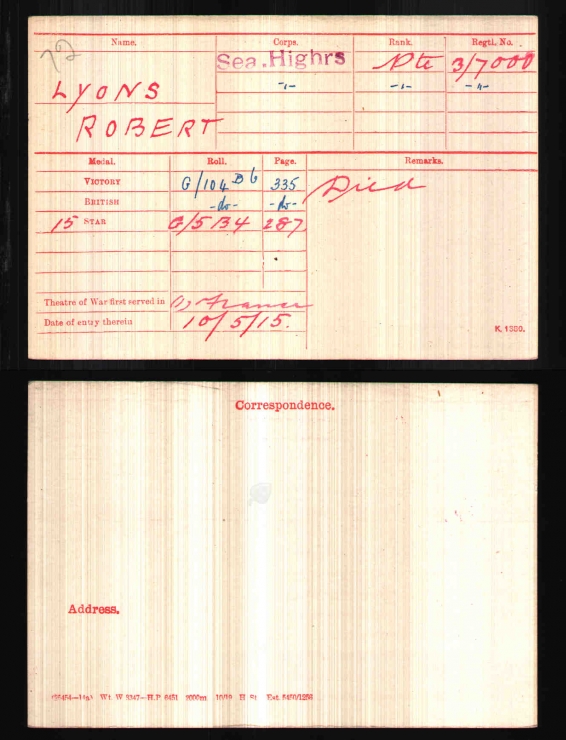 72
Name. Corps. Rank. Regtl. No.
Sea. Highrs Pte 3/7000
LYONS -"- -"- -"-
ROBERT
Medal. Roll. Page. Remarks.
VICTORY G/104 B6 335 Died
BRITISH -do- -do-
15 STAR G/5 B4 287
Theatre of War first served in (1) France
Date of entry therein 10/5/15.
K. 1380.
Correspondence.
Address.
Wt. W 3347—H.P 2000m 10/19 H. St.